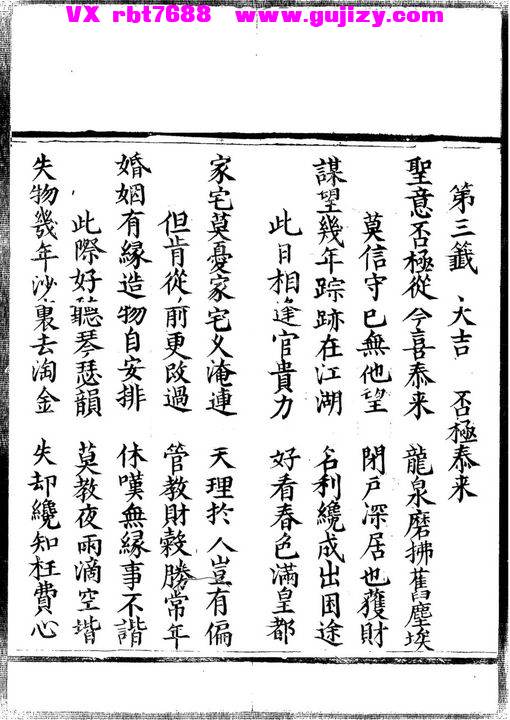 VX rbt7688 www.gujizy.com
第三籤、大吉 否極泰来
聖意否極從今喜泰来 龍泉磨拂舊塵埃
莫信守已無他望 閉戸深居也獲財
謀望幾年踪跡在江湖 名利纔成出困途
此日相逢官貴力 好看春色滿皇都
家宅莫憂家宅乆淹連 天理扵人豈有偏
但肯從前更改過 管教財穀勝常年
婚姻有縁造物自安排 休嘆無縁事不諧
此際好聽琴瑟韻 莫教夜雨滴空堦
失物幾年沙裏去淘金 失却纔知枉費心